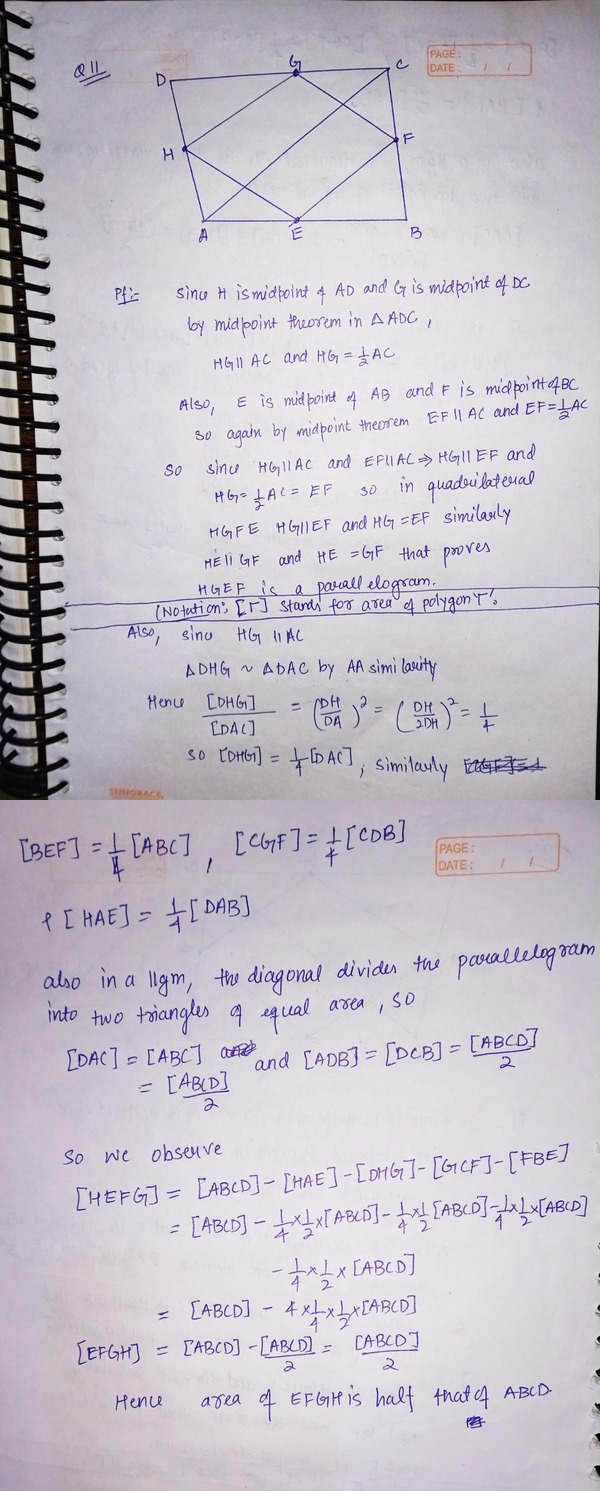 Q 11
PAGE:
DATE: / /
D G C
H F
A E B
Pf:- Since H is midpoint of AD and G is midpoint of DC
by midpoint theorem in △ADC,
HG || AC and HG = 1/2 AC
Also, E is midpoint of AB and F is midpoint of BC
so again by midpoint theorem EF || AC and EF = 1/2 AC
So since HG || AC and EF || AC ⇒ HG || EF and
HG = 1/2 AC = EF so in quadrilateral
HGFE HG || EF and HG = EF similarly
HE || GF and HE = GF that proves
HGEF is a parallelogram.
(Notation: [Γ] stands for area of polygon 'Γ'.
Also, since HG || AC
△DHG ~ △DAC by AA similarity
Hence [DHG]/[DAC] = (DH/DA)² = (DH/2DH)² = 1/4
so [DHG] = 1/4 [DAC], similarly
SUNDBACK
[BEF] = 1/4 [ABC], [CGF] = 1/4 [CDB]
PAGE:
DATE: / /
& [HAE] = 1/4 [DAB]
also in a ||gm, the diagonal divides the parallelogram
into two triangles of equal area, so
[DAC] = [ABC] and [ADB] = [DCB] = [ABCD]/2
= [ABCD]/2
So we observe
[HEFG] = [ABCD] - [HAE] - [DHG] - [GCF] - [FBE]
= [ABCD] - 1/4 × 1/2 × [ABCD] - 1/4 × 1/2 [ABCD] - 1/4 × 1/2 × [ABCD]
- 1/4 × 1/2 × [ABCD]
= [ABCD] - 4 × 1/4 × 1/2 × [ABCD]
[EFGH] = [ABCD] - [ABCD]/2 = [ABCD]/2
Hence area of EFGH is half that of ABCD.